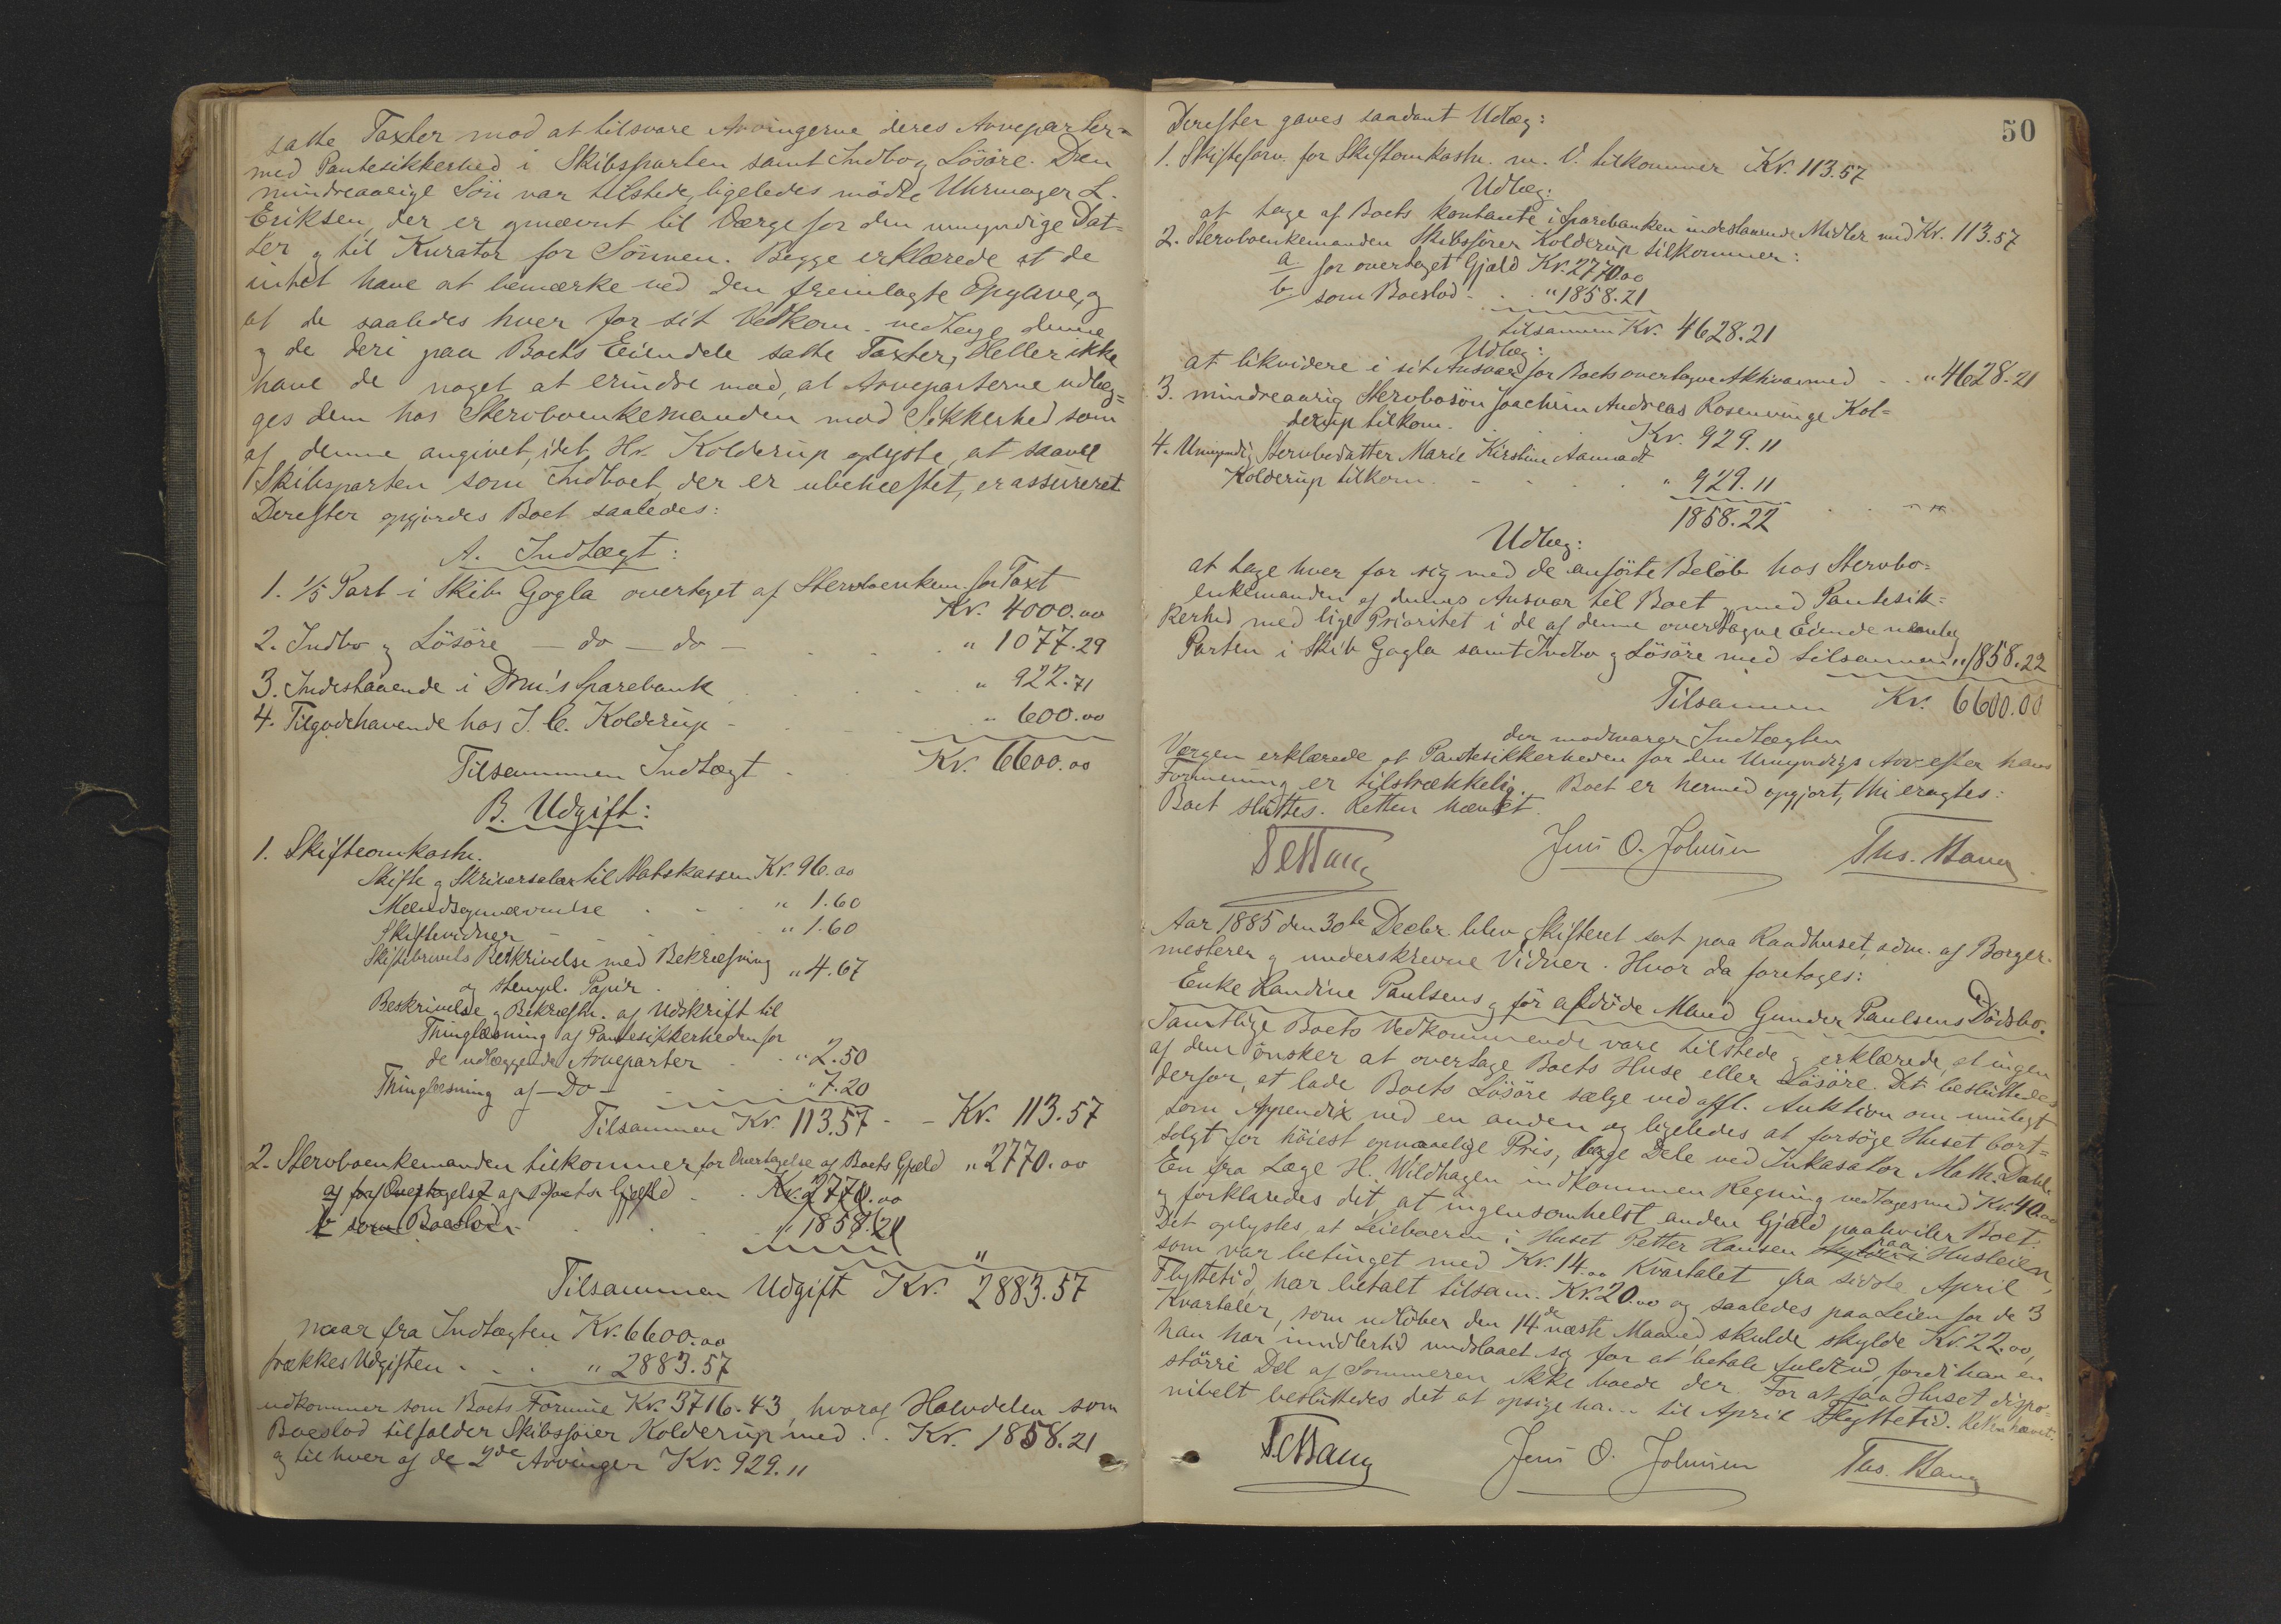 satte Taxter mod at tilsvare Arvingerne deres Arveparter
med Pantesikkerhed i Skibsparten samt Indbo og Lösöre. Den
mindreaarige Sön var tilstede, ligeledes mödte Uhrmager L.
Eriksen, der er opnævnt til Værge for den umyndige Dat=
ter og til Kurator for Sönnen. Begge erklærede at de
intet have at bemærke ved den fremlagte Opgave, og
at de saaledes hver for sit Vedkom. vedtage denne
og de deri paa Boets Eiendele satte Taxter, Heller ikke
have de noget at erindre mod, at Arveparterne udlæg=
ges dem hos Stervboenkemanden mod Sikkerhed som
af denne angivet, idet Hr. Kolderup oplyste, at saavel
Skibsparten som Indboet, der er ubeheftet, er assureret
Derefter opgjordes Boet saaledes:
A. Indtægt:
1. 1/5 Part i Skib Gogla overtaget af Stervboenkem. for Taxt
Kr. 4000.00
2. Indbo og Lösöre — do — do — " 1077.29
3. Indestaaende i Drm's Sparebank " 922.71
4. Tilgodehavende hos J. C. Kolderup - " 600.00
Tilsammen Indtægt - Kr. 6600.00
B. Udgift:
1. Skifteomkostn.
Skifte og Skriversalær til Statskassen Kr. 96.00
Mændsopnævnelse " 1.60
Skiftevidner " 1.60
Skiftebrevets Beskrivelse med Bekræftning
og stempl. Papir " 4.67
Beskrivelse og Bekræftn. af Udskrift til
Thinglæsning af Pantesikkerheden for
de udlæggende Arveparter " 2.50
Thinglæsning af — Do — " 7.20
Tilsammen Kr. 113.57 - - Kr. 113.57
2. Stervboenkemanden tilkommer for Overtagelse af Boets Gjæld " 2770.00
a for Overtagelse af Boets Gjæld . . Kr. 2770.00
b som Boeslod " 1858.21
"
Tilsammen Udgift Kr. 2883.57
naar fra Indtægten Kr. 6600.00
trækkes Udgiften . . . " 2883.57
udkommer som Boets Formue Kr. 3716.43, hvoraf Halvdelen som
Boeslod tilfalder Skibsförer Kolderup med . . Kr. 1858.21
og til hver af de 2de Arvinger Kr. 929.11
50
Derefter gaves saadant Udlæg:
1. Skifteforv. for Skifteomkostn. m. V. tilkommer Kr. 113.57
Udlæg:
at tage af Boets kontante i Sparebanken indestaaende Midler med Kr. 113.57
2. Stervboenkemanden Skibsförer Kolderup tilkommer:
a for overtaget Gjæld Kr. 2770.00
b som Boeslod - . . " 1858.21
tilsammen Kr. 4628.21
Udlæg:
at likvidere i sit Ansvar for Boets overtagne Aktiva med - . . " 4628.21
3. mindreaarig Stervbosön Joachim Andreas Rosenvinge Kol=
derup tilkom. Kr. 929.11
4. Umyndig Stervbodatter Marie Kirstine Aamodt
Kolderup tilkom. " 929.11
1858.22
Udlæg:
at tage hver for sig med de anförte Belöb hos Stervbo=
enkemanden af dennes Ansvar til Boet med Pantesik=
kerhed med lige Prioritet i de af denne overtagne Eiende nemlig
Parten i Skib Gogla samt Indbo og Lösöre med tilsammen " 1858.22
Tilsammen Kr. 6600.00
der modsvarer Indtægten
Værgen erklærede at Pantesikkerheden for den Umyndiges Arv efter hans
Formening er tilstrækkelig. Boet er hermed opgjort, thi eragtes:
Boet sluttes. Retten hævet.
Jens O. Johnsen Ths. Haug
Aar 1885 den 30te Decbr. blev Skifteret sat paa Raadhuset, adm. af Borger=
mesteren og underskrevne Vidner. Hvor da foretoges:
Enke Randine Paulsens og för afdöde Mand Gunder Paulsens Dödsbo.
Samtlige Boets Vedkommende vare tilstede og erklærede, at ingen
af dem önsker at overtage Boets Huse eller Lösöre. Det besluttedes
derfor, at lade Boets Lösöre sælge ved offl. Auktion om muligt
som Appendix ved en anden og ligeledes at forsöge Huset bort=
solgt for höiest opnaaelige Pris, begge Dele ved Inkasator Math. Dahl.
En fra Læge H. Wildhagen indkommen Regning vedtoges med Kr. 40.00
og forklaredes det, at ingensomhelst anden Gjæld paahviler Boet.
Det oplystes, at Leieboeren i Huset Petter Hansen paa Husleien,
som var betinget med Kr. 14.00 Kvartalet fra sidste April
Flyttetid, har betalt tilsam. Kr. 20.00 og saaledes paa Leien for de 3
Kvartaler, som udlöber den 14de næste Maaned skulde skylde Kr. 22.00,
han har imidlertid undslaaet sig for at betale fuldt ud, fordi han en
större Del af Sommeren ikke boede der. For at faa Huset dispo=
nibelt besluttedes det at opsige ham til April Flyttetid. Retten hævet.
Jens O. Johnsen Ths. Haug